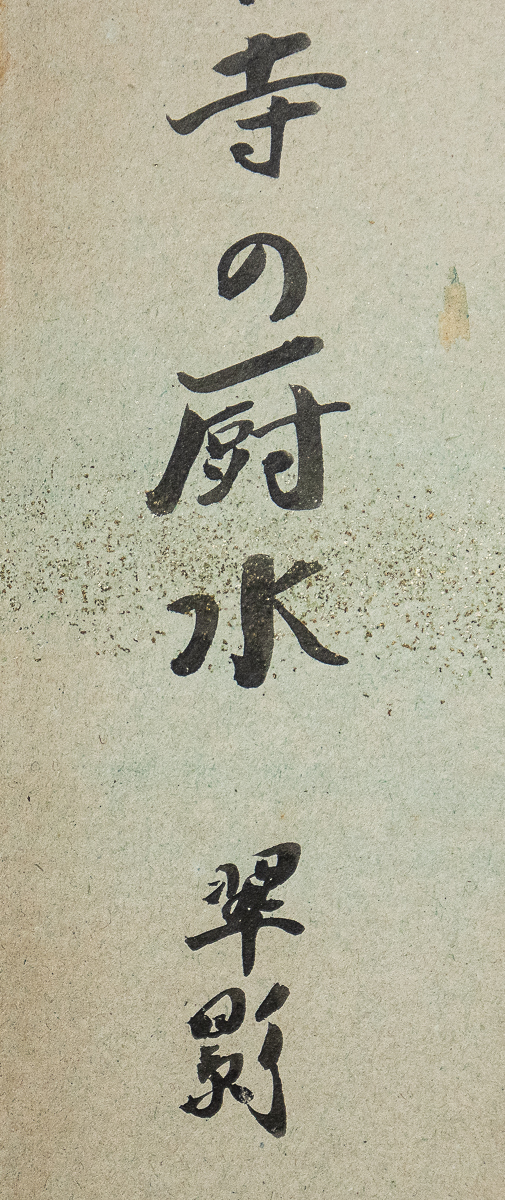 寺の厨水
翠影